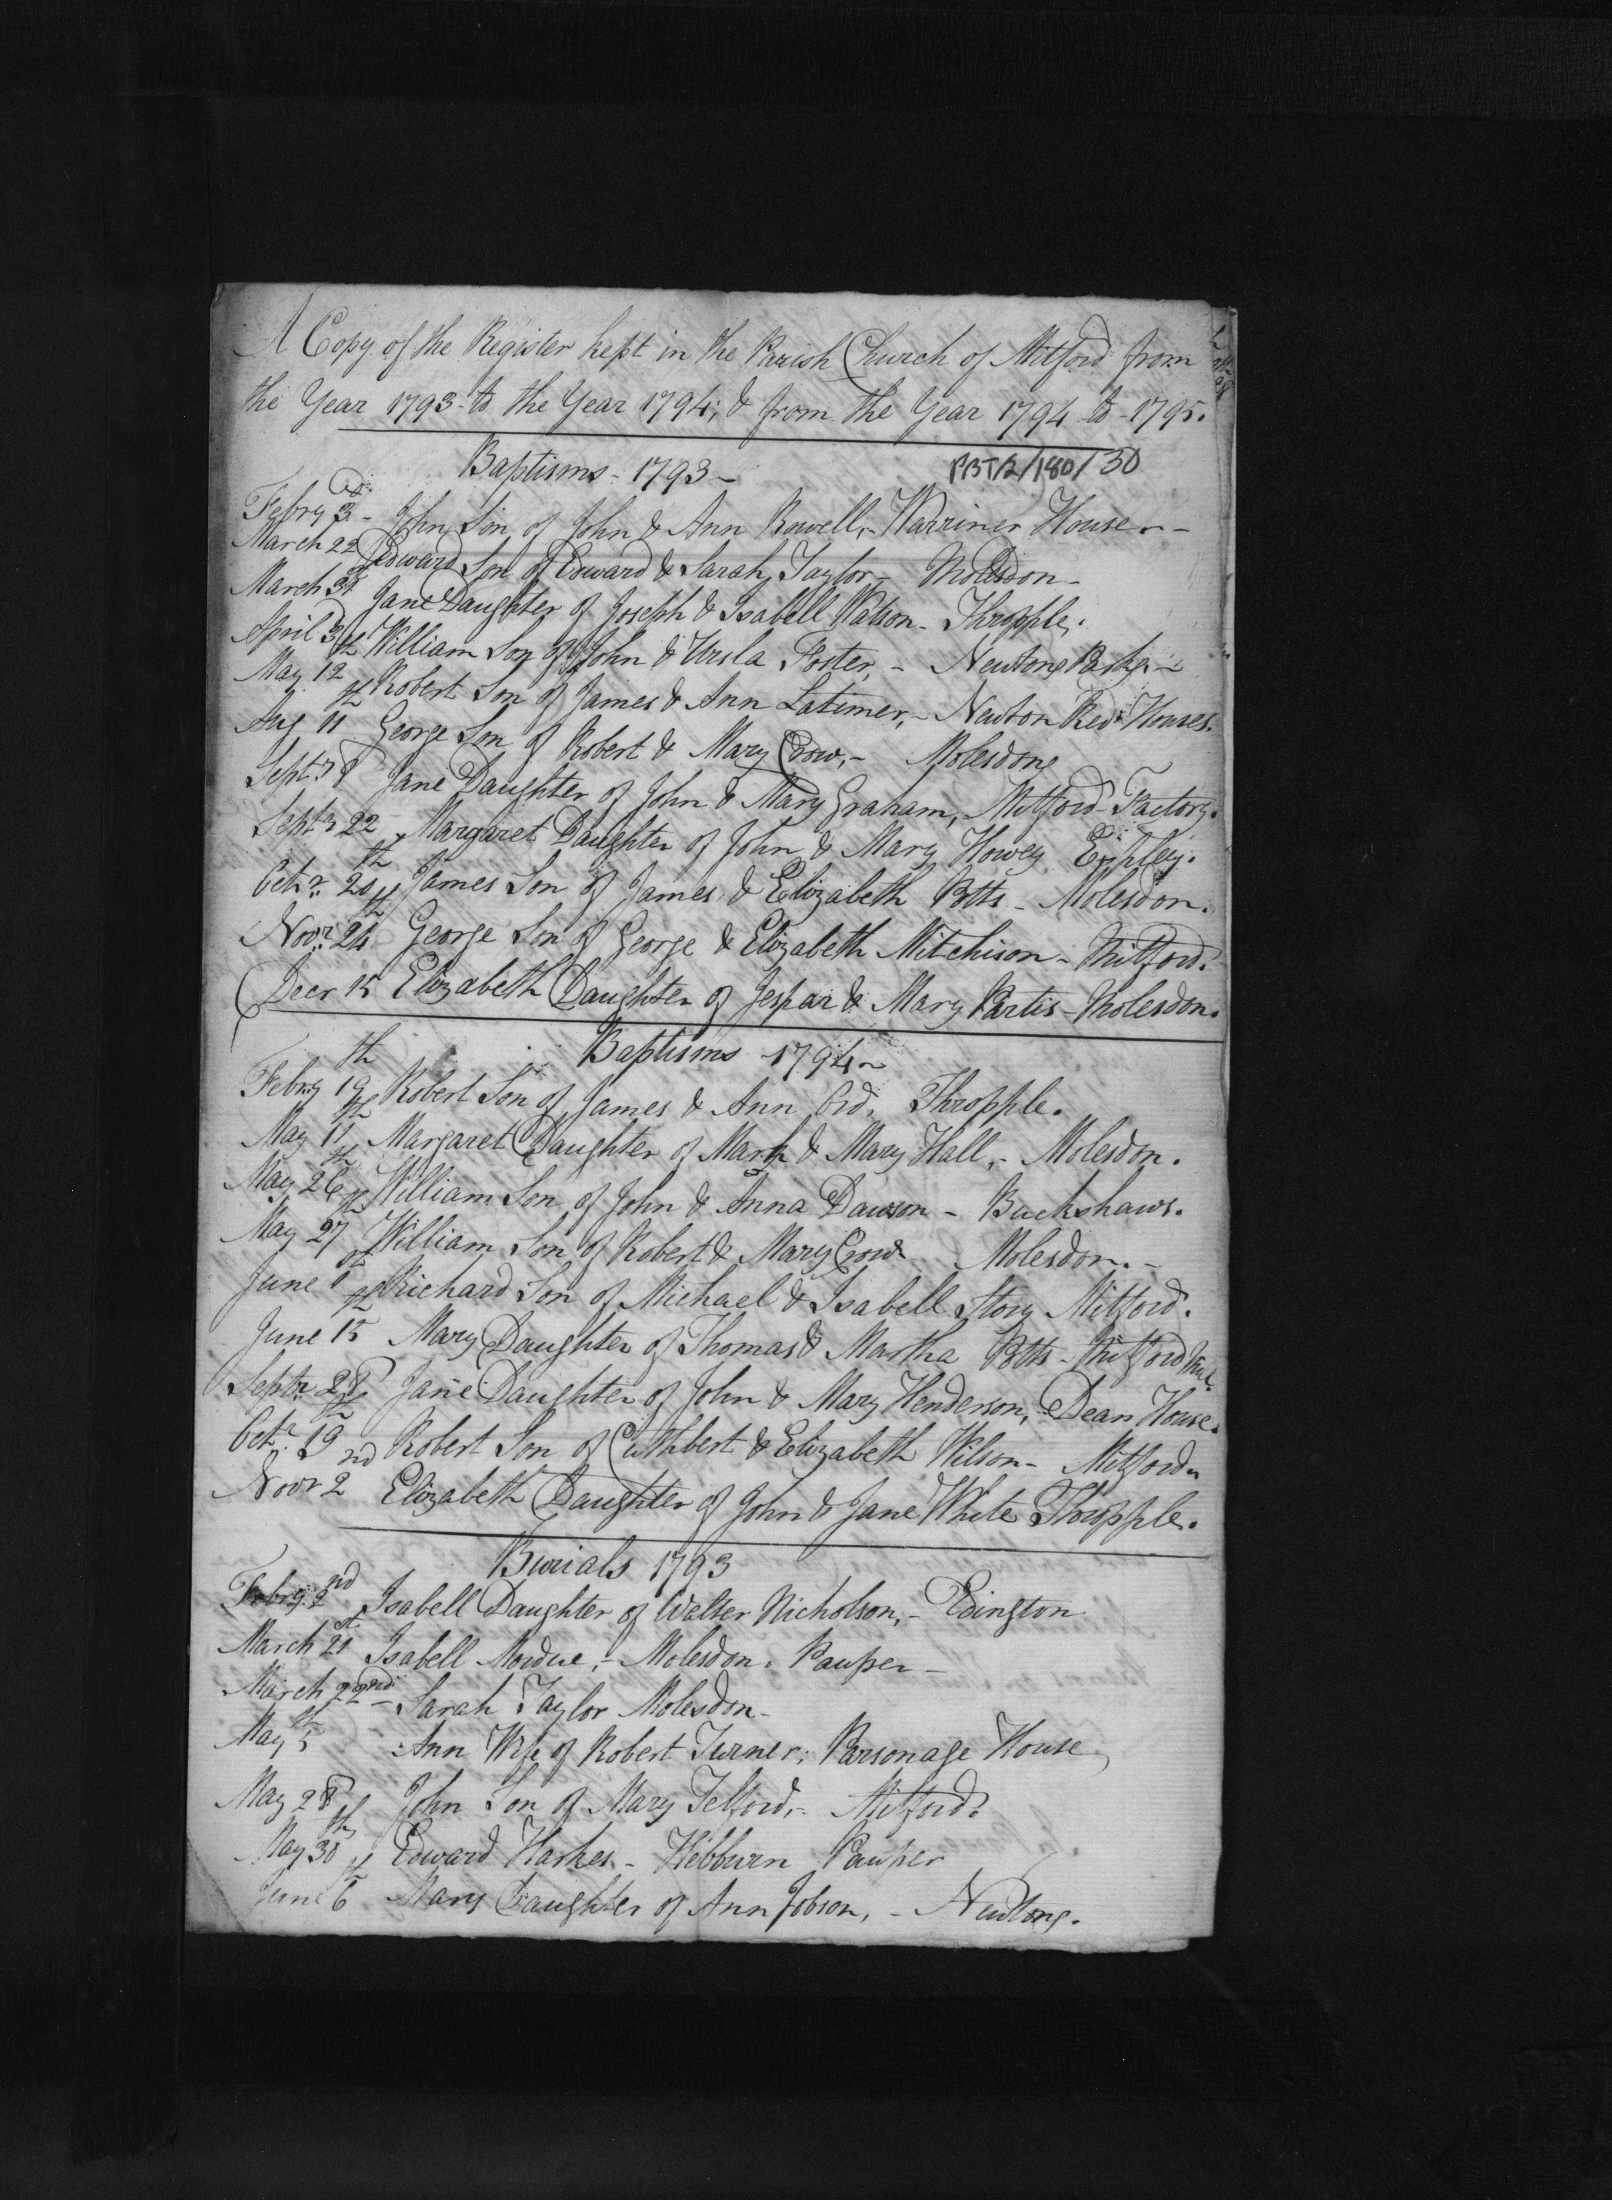 A Copy of the Register kept in the Parish Church of Mitford from
the Year 1793 to the Year 1794; & from the Year 1794 to 1795.
Baptisms - 1793 -
PBT/2/180/30
Febry 3d - John Son of John & Ann Rowell, - Warriner House. -
March 22 Edward Son of Edward & Sarah Taylor - Molesdon -
March 31st Jane Daughter of Joseph & Isabell Watson - Thropple.
April 3d William Son of John & Ursla Foster, - Newton Parke. -
May 12th Robert Son of James & Ann Latimer, - Newton Red Houses.
Aug 11th George Son of Robert & Mary Crow, - Molesdon
Septr 8 Jane Daughter of John & Mary Graham, - Mitford Factory.
Septr 22 Margaret Daughter of John & Mary Howey Espley.
Octr 20th James Son of James & Elizabeth Potts - Molesdon.
Novr 24th George Son of George & Elizabeth Mitchison - Mitford.
Decr 15 Elizabeth Daughter of Jespar & Mary Partis - Molesdon.
Baptisms 1794 -
Febry 19th Robert Son of James & Ann Ord, Thropple.
May 11th Margaret Daughter of Mark & Mary Hall, - Molesdon.
May 26th William Son of John & Anna Dawson - Buckshaws.
May 27th William Son of Robert & Mary Crow Molesdon. -
June 1st Richard Son of Michael & Isabell Story Mitford.
June 15th Mary Daughter of Thomas & Martha Potts - Mitford
Septr 28 Jane Daughter of John & Mary Henderson, - Dean House.
Octr 19th Robert Son of Cuthbert & Elizabeth Wilson - Mitford
Novr 2nd Elizabeth Daughter of John & Jane White Thropple.
Burials 1793
Febry 2nd Isabell Daughter of Walter Nicholson, - Edington
March 21st Isabell Mordue, - Molesdon. Pauper -
March 22nd - Sarah Taylor Molesdon -
May 5th Ann Wife of Robert Turner, Parsonage House
May 28 John Son of Mary Telford, - Mitford.
May 30th Edward Harkes - Hebburn Pauper
June 6th Mary Daughter of Ann Jobson, - Newton.